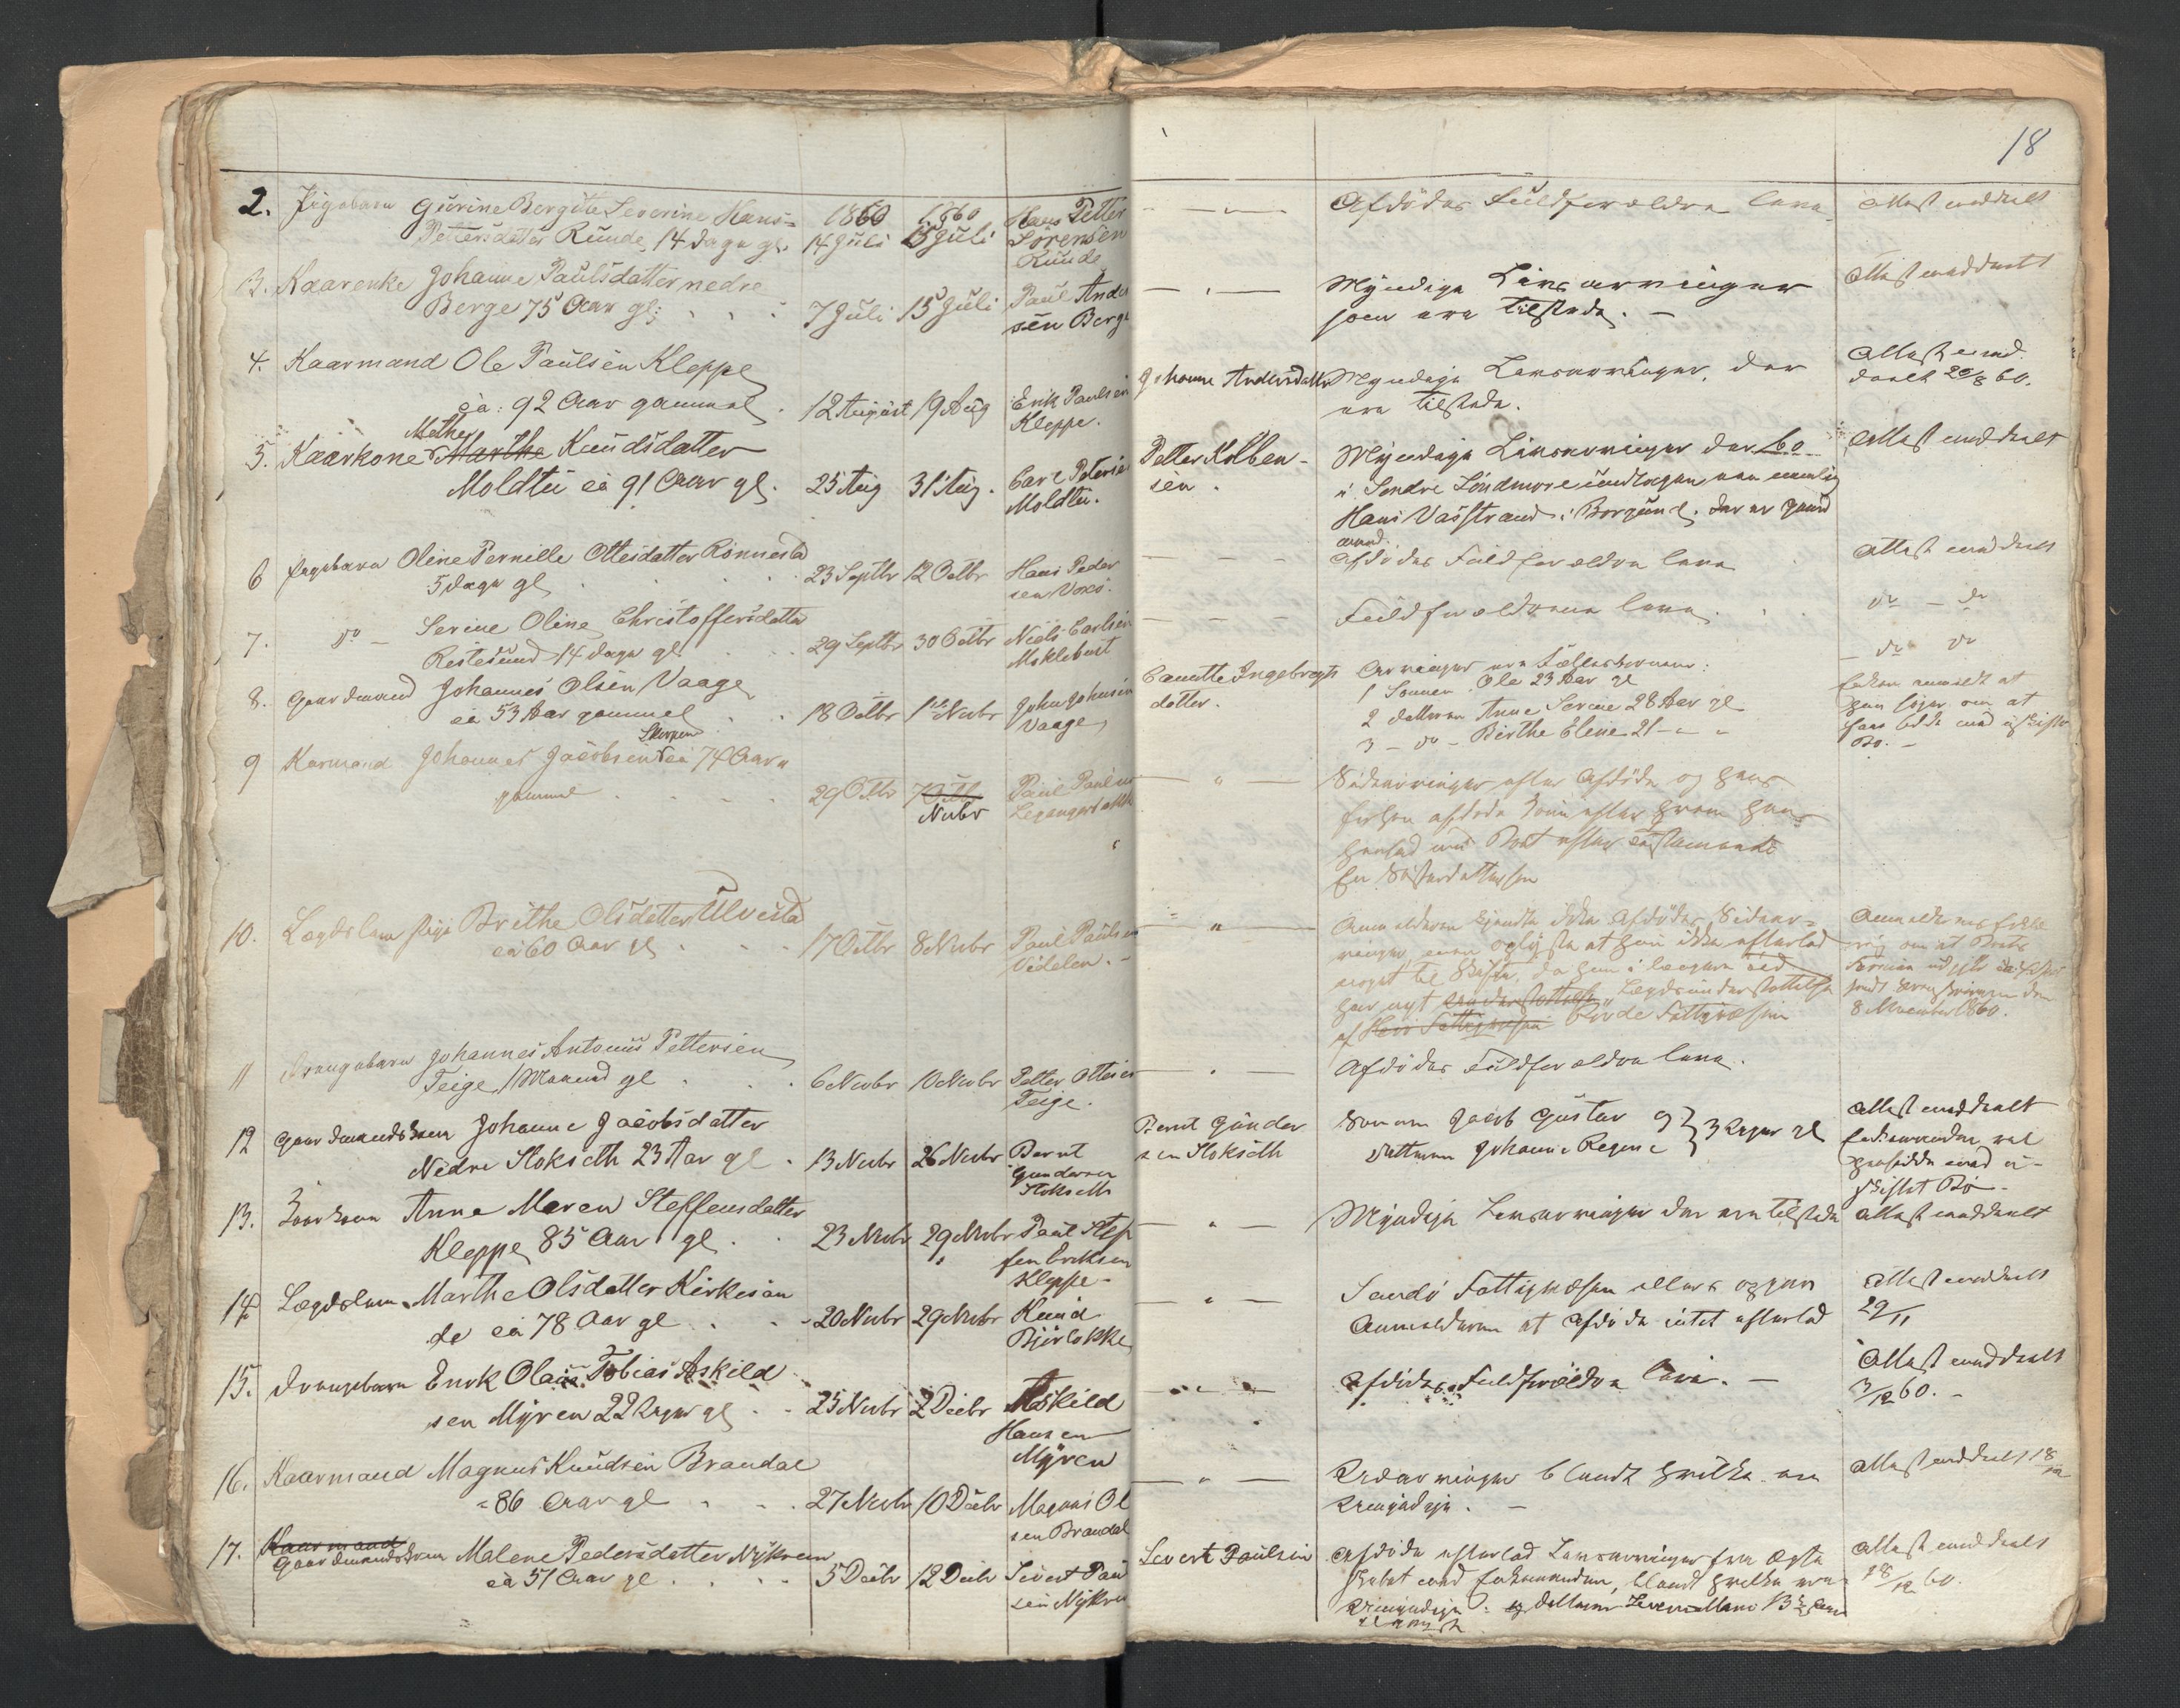 18
2. Pigebarn Gurine Bergitte Severine Hans=
Pettersdatter Runde, 14 dage gl.
1860
14 Juli
1860
15 Juli
Hans Petter
Sörensen
Runde
Afdödes Fuldforældre leve.
Attest meddeelt
3. Kaarenke Johanne Paulsdatter nedre
Berge 75 Aar gl:
7 Juli
15 Juli
Paul Ander
sen Berge
Myndige Livsarvinger
som ere tilstede. —
Attest meddeelt
4. Kaarmand Ole Paulsen Kleppe
ca: 92 Aar gammel.
12 August
19 Aug
Erik Paulsen
Kleppe.
Johanne Andersdatter
Myndige Livsarvinger, der
ere tilstede.
Attest med
deelt 20/8 60.
5. Kaarkone Marthe Knudsdatter
Methe
Moldtu ca 91 Aar gl.
25 Aug
31 Aug.
Carl Peterse
Moldtu.
Petter Kolben-
sen.
Myndige Livsarvinger der bo
i Söndre Söndmöre undtagen een nemlig
Hans Vasstrand i Borgund, der er Gaard
mand.
Attest meddeelt
6 Pigebarn Oline Pernille Ottesdatter Rönnestad
5 dage gl
23 Septbr
12 Octbr
Hans Peder
sen Voxö.
Afdödes Fuldforældre leve
Attest meddeelt
7. do — Serine Oline Christoffersdatter
Restesund 14 dage gl
29 Septbr
30 Octbr
Niels Carlsen
Moklebust
Fuldforældrene leve.
do — do
8. Gaardmand Johannes Olsen Vaage
ca 53 Aar gammel
18 Octbr
1ste Novbr
John Johnsen
Vaage
Ingebrigts
datter.
Arvinger ere Fællesbörnene:
1 Sönnen Ole 23 Aar gl
2 datteren Anne Serine 28 Aar gl
3 — do — Berthe Eline 21 — " "
do do
Enken anmeldt at
hun söger om at
sidde med uskiftet
Bo. —
9 Karmand Johannes Jacobsen ca 74 Aar
gammel
29 Octbr
7 Octbr
Novbr
Paul Paulsen
Sidearvinger efter Afdöde og hans
forhen afdöde Kone efter hvem han
hensad med Boet efter Testamente
En Södskendattersön
10. Lægdslem Pige Brithe Olsdatter Ulvestad
ca 60 Aar gl
17 Octbr
8 Novbr
Paul Paulsen
Videlen. —
Anmelderen kjendte ikke Afdödes Sidear-
vinger, men oplyste at hun ikke efterlod
noget til Skifte, da hun i længere Tid
har nydt understöttelse Lægdsunderstöttelse
af Herö Fattigvæsen Rovde Fattigvæsen
8 November 1860.
11 Drengebarn Johannes Antonius Pettersen
Teige 1 Maaned gl
6 Novbr
10 Novbr
Petter Ottesen
Teige.
Afdödes Fuldforældre leve.
12 Gaardmandskone Johanne Jacobsdatter
Nedre Stokseth 23 Aar gl
13 Novbr
26 Novbr
Bernt
Gundersen
Stokseth
Bernt Gunder
sen Stokseth
Sönnen Jacob Gustav og
Datteren Johanne Regine
3 Uger gl
Attest meddeelt
Enkemanden vil
hensidde med u-
skiftet Bo —
13. Kaarkone Anne Maren Steffensdatter
Kleppe 85 Aar gl
23 Novbr
29 Novbr
Paul Stef
fen Eriksen
Kleppe —
Myndige Livsarvinger der ere tilstede
Attest meddeelt
14 Lægdslem Marthe Olsdatter Kirkesun
de ca 78 Aar gl
20 Novbr
29 Novbr
Knud
Björlokke
Sandö Fattigvæsen ellers opgav
Anmelderen at Afdöde intet efterlod
Attest meddeelt
29/11
15. Drengebarn Enok Olaus Tobias Askild
sen Myren 22 Uger gl
25 Novbr
2 Decbr
Askild
Hansen
Myren
Afdödes Fuldforældre leve. —
Attest meddeelt
3/12 60. —
16. Kaarmand Magnus Knudsen Brandal
86 Aar gl
27 Novbr
10 Decbr
Magnus Ol
sen Brandal
Udarvinger blandt hvilke ere
Umyndige. —
Attest meddeelt 18/12
17. Kaarmand
Gaardmandskone Malene Pedersdatter Nykrem
ca 51 Aar gl
5 Decbr
12 Decbr
Sivert Paul
sen Nykrem
Sivert Paulsen
Afdöde efterlod Livsarvinger fra Ægte
skabet med Enkemanden, blandt hvilke ere
Umyndige:
Attest meddeelt
18/12 60.